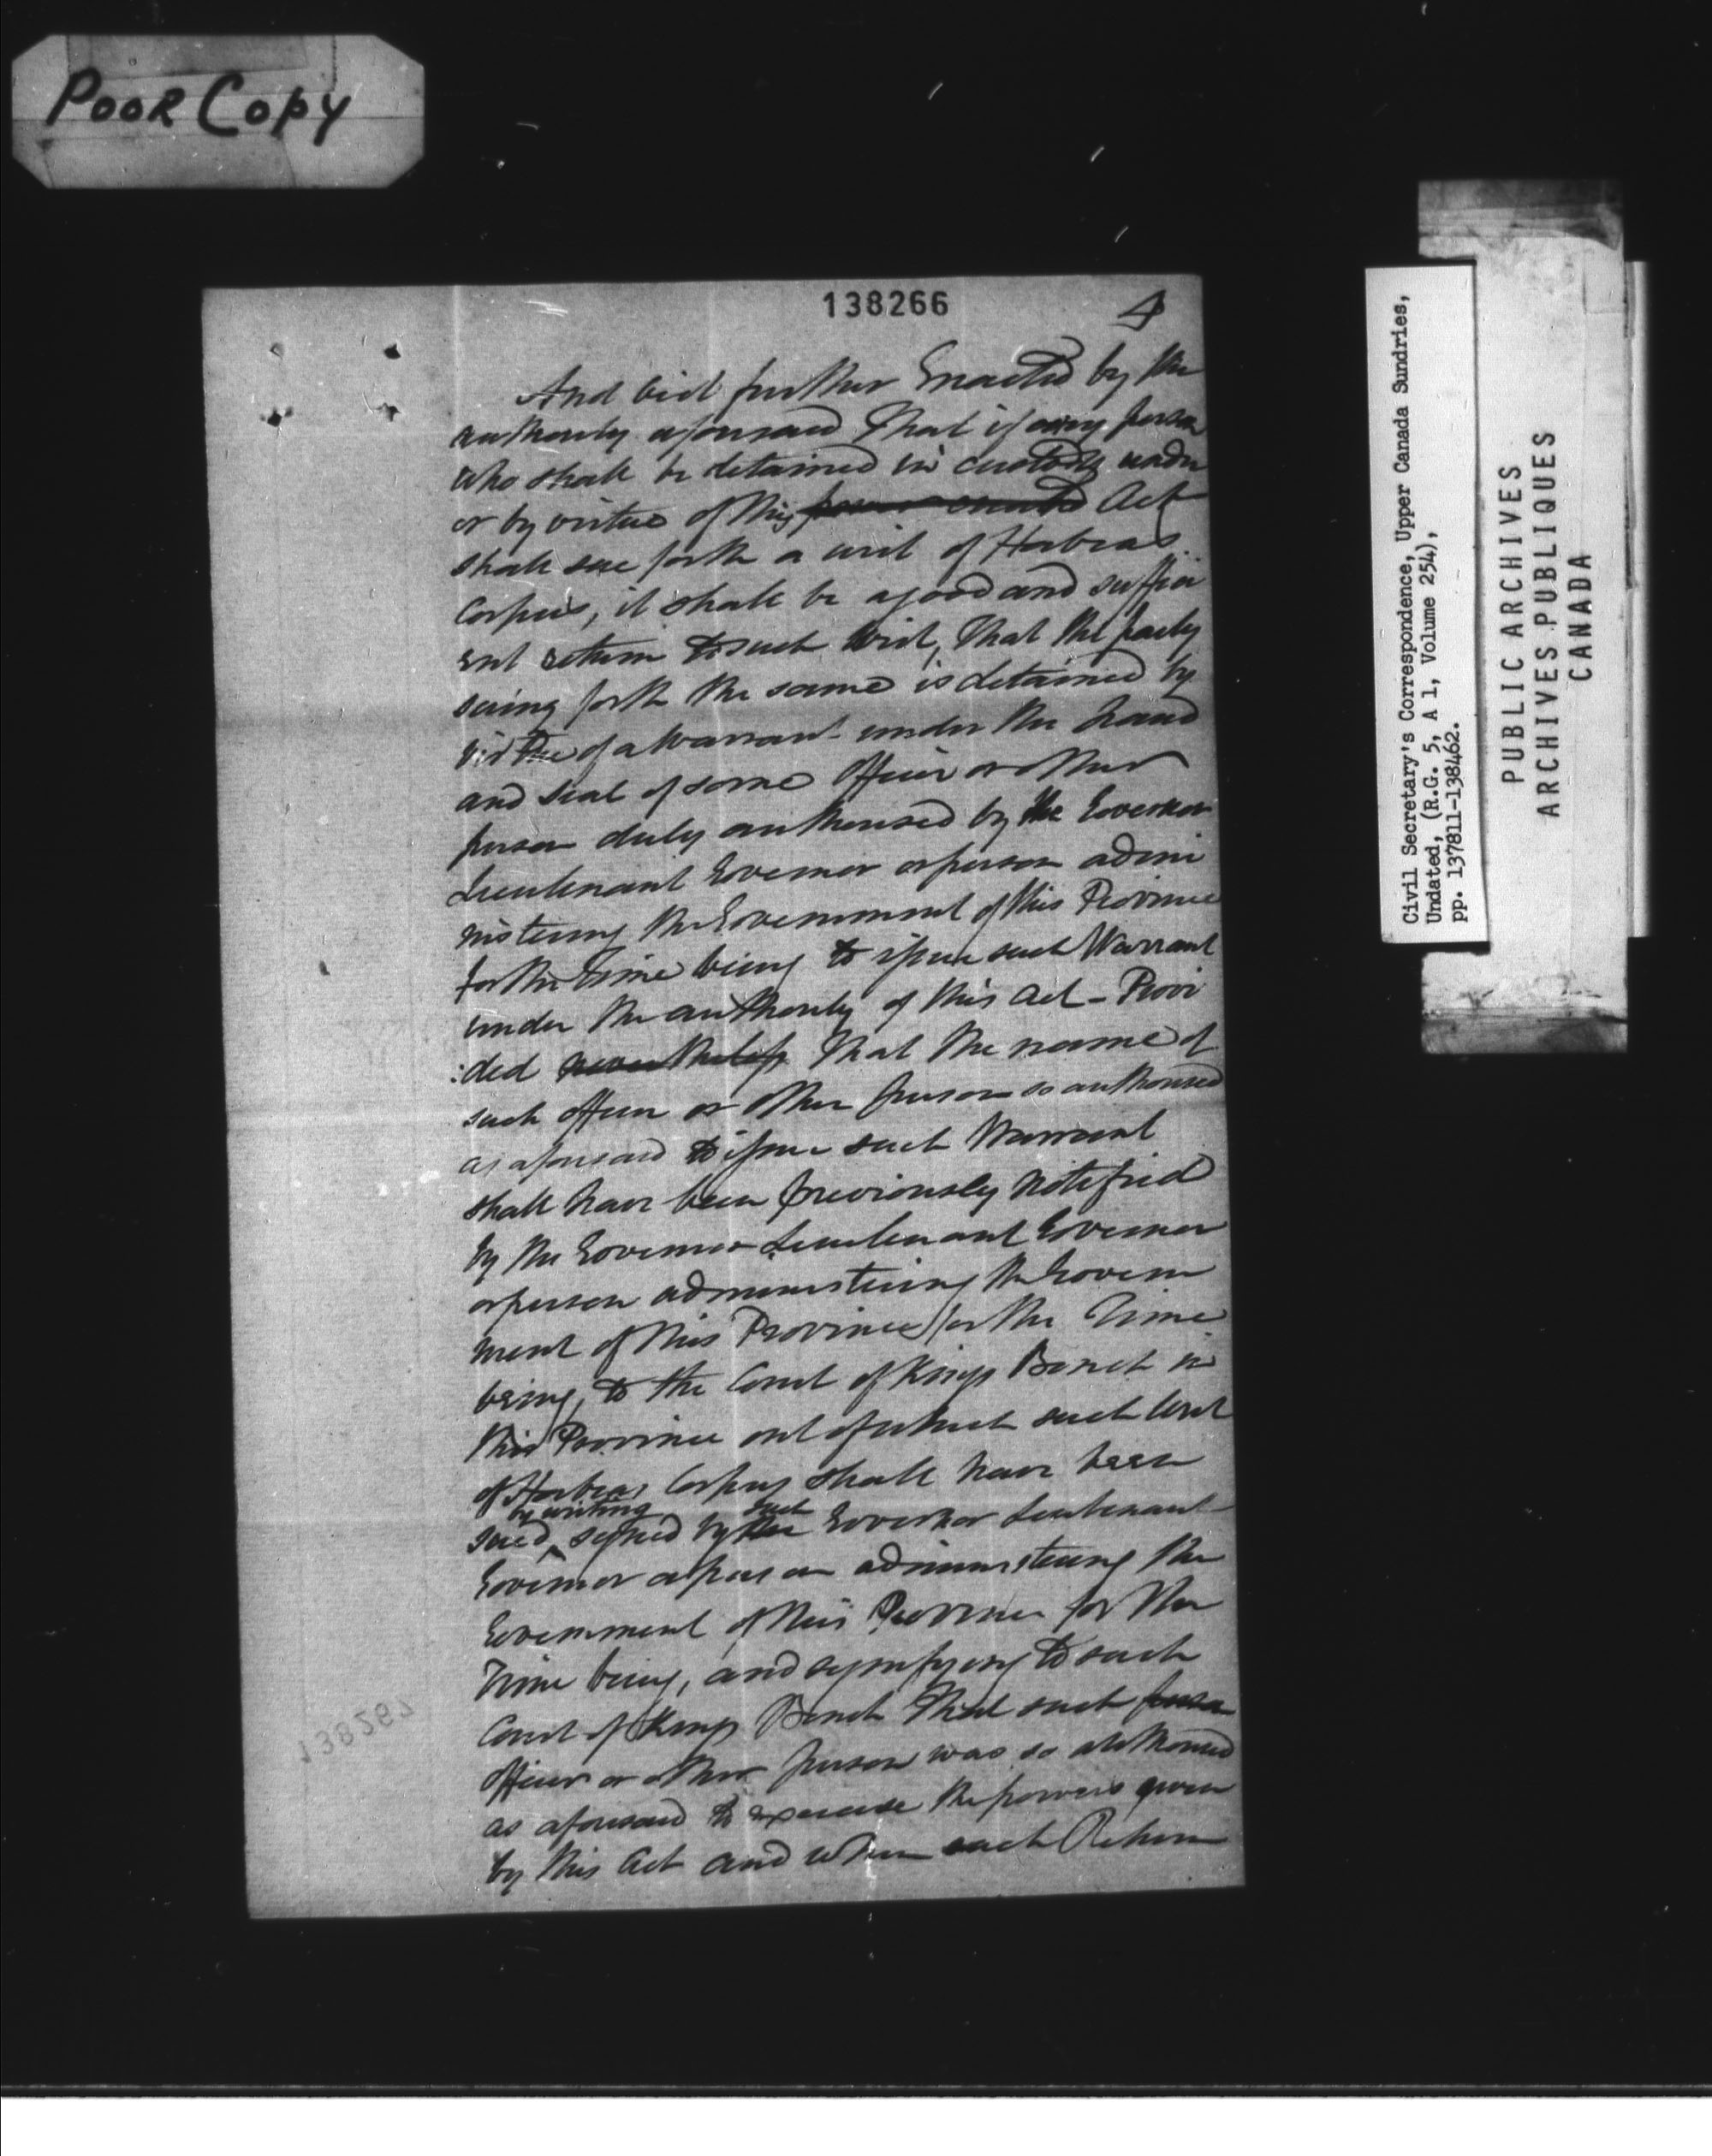 POOR COPY
138266
4
And be it further Enacted by the
authority aforesaid That if any person
who shall be detained in custody under
or by virtue of this Act
shall sue forth a writ of Habeas
Corpus, it shall be a good and suffici
ent return to such Writ, That the party
suing forth the same is detained by
virtue of a Warrant under the hand
and seal of some Officer or other
person duly authorised by the Governor
Lieutenant Governor or person admi
nistering the Government of this Province
for the Time being to issue such Warrant
under the authority of this Act - Provi
:ded nevertheless That the name of
such officer or other person so authorised
as aforesaid to issue such Warrant
shall have been previously notified
by the Governor Lieutenant Governor
or person administering the Govern
ment of this Province for the Time
being, to the Court of Kings Bench in
this Province out of which such Writ
of Habeas Corpus shall have been
by writing such
sued, signed by the Governor Lieutenant
Governor or person administering the
Government of this Province for the
Time being, and signifying to such
Court of Kings Bench That such person
officer or other person was so authorised
as aforesaid to exercise the powers given
by this Act and when such Return
138267
Civil Secretary's Correspondence, Upper Canada Sundries,
Undated, (R.G. 5, A 1, Volume 254),
pp. 137811-138462.
PUBLIC ARCHIVES
ARCHIVES PUBLIQUES
CANADA